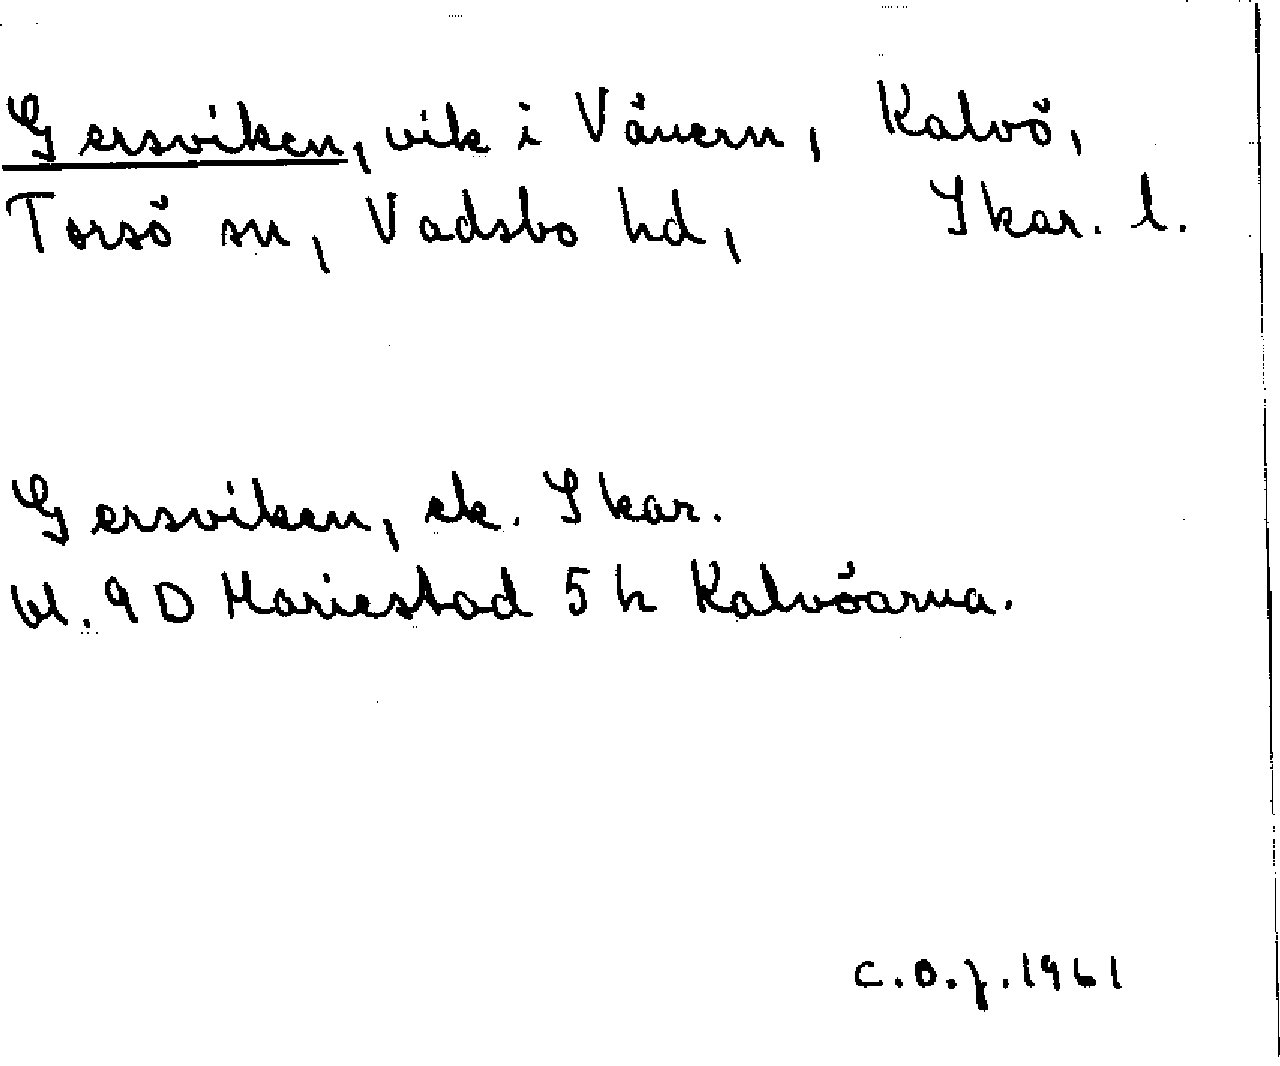 Gersviken, vik i Vänern, Kalvö,
Torsö sn, Vadsbo hd, Skar. l.
Gersviken, ek. Skar.
bl. 9 D Mariestad 5 h Kalvöarna.
C.O.J. 1961